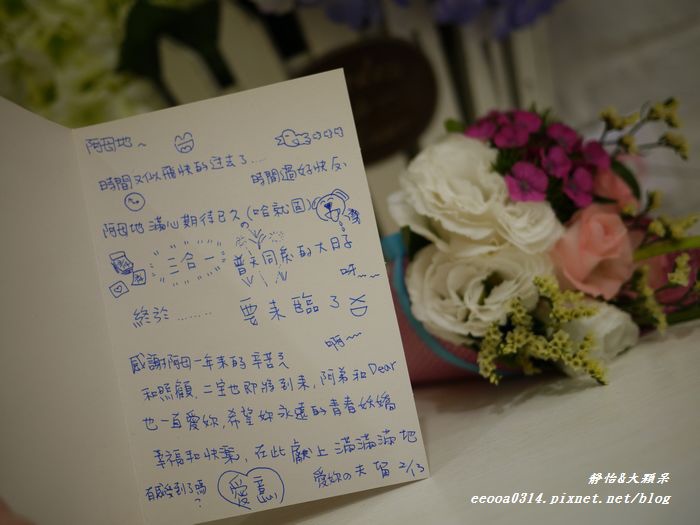 阿母地~
時間又似飛快的过去了....
時間過好快ㄉ
阿母地滿心期待已久(哈就固)
二合一 普天同慶的大日子
呀~~
終於........ 要來臨了
啊~~
感謝阿母一年來的辛苦
和照顧,二宝也即將到來,阿弟和Dear
也一直愛妳,希望妳永遠的青春妖嬌
幸福和快樂,在此獻上滿滿滿地
有感受到了嗎? 愛意 愛妳の夫 留 2/13
靜怡&大顆呆
eeooa0314.pixnet.net/blog